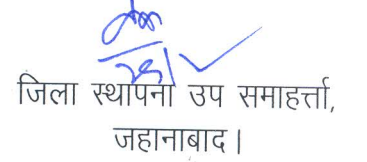 जिला स्थापना उप समाहर्त्ता,
जहानाबाद।